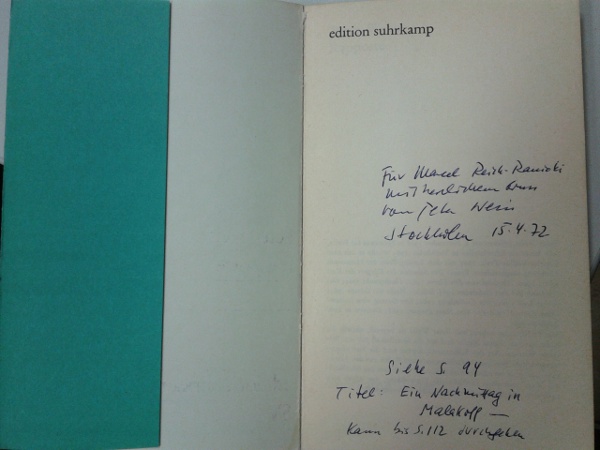 edition suhrkamp
Für Marcel Reich-Ranicki
mit herzlichem Gruss
von Peter Weiss
Stockholm 15.4.72
Siehe S. 94
Titel: Ein Nachmittag in
Malakoff —
Kann bis S.112 durchgehen